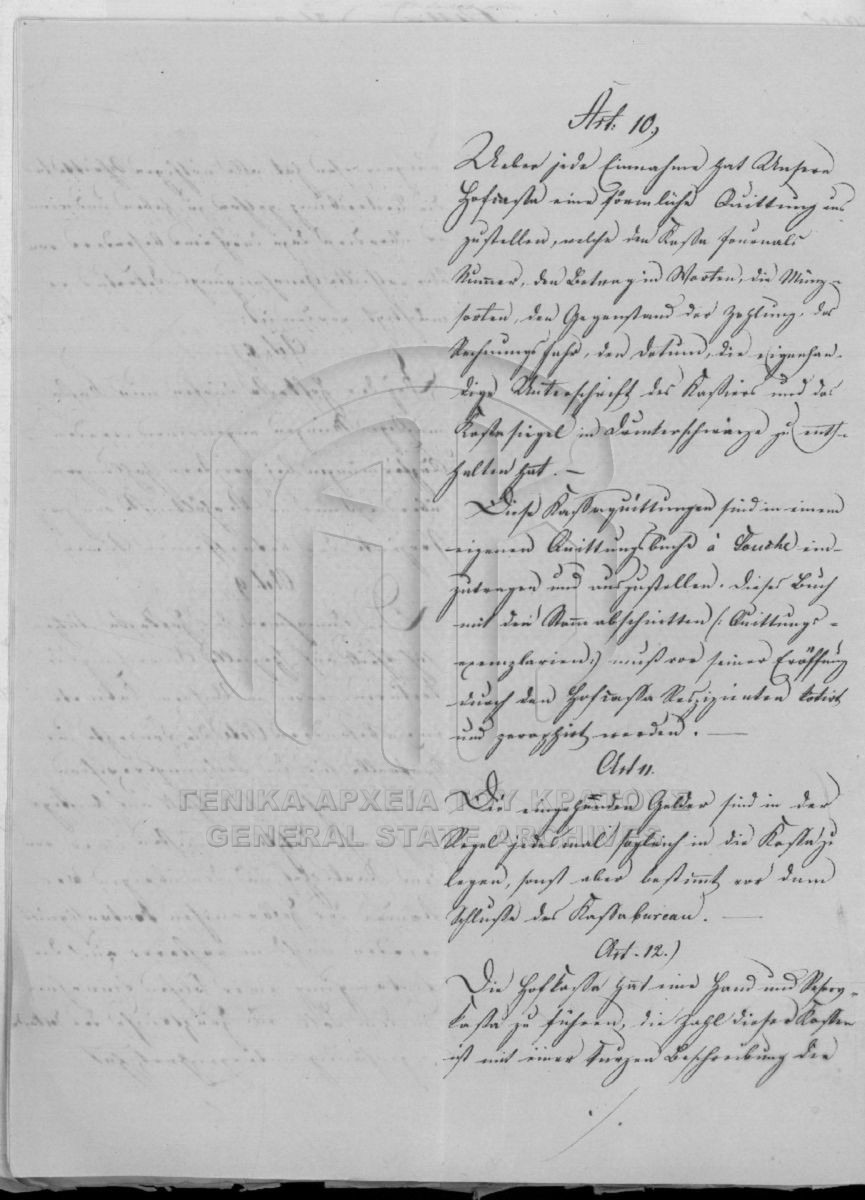 Art. 10,
Ueber jede Einnahme hat Unsere
Hofcassa eine förmliche Quittung aus
zustellen, welche den Kassa Journals
Numer, den Betrag in Worten, die Münz-
sorten, den Gegenstand der Zahlung, das
Rechnungsjahr, den Datum, die eigenhän-
dige Unterschrift des Kassiers und das
Kassasiegel in Drukerschwärze zu ent-
halten hat. —
Diese Kassaquittungen sind in einem
eigenen Quittungsbuche à Souche ein-
zutragen und auszustellen. Dieses Buch
mit den Stammabschnitten (: Quittungs-
exemplarien :) muß vor seiner Eröffnung
durch den Hofcassa Respizienten
und paraphirt werden. —
Art 11.
Die eingehenden Gelder sind in der
Regel jedesmal sogleich in die Kassa zu
legen, sonst aber bestimmt vor dem
Schlusse des Kassabureau. —
Art. 12.)
Die Hofkassa hat eine Hand und Reserv-
kassa zu führen, die Zahl dieser Kassen
ist mit einer kurzen Beschreibung der
ΓΕΝΙΚΑ ΑΡΧΕΙΑ ΤΟΥ ΚΡΑΤΟΥΣ
GENERAL STATE ARCHIVES